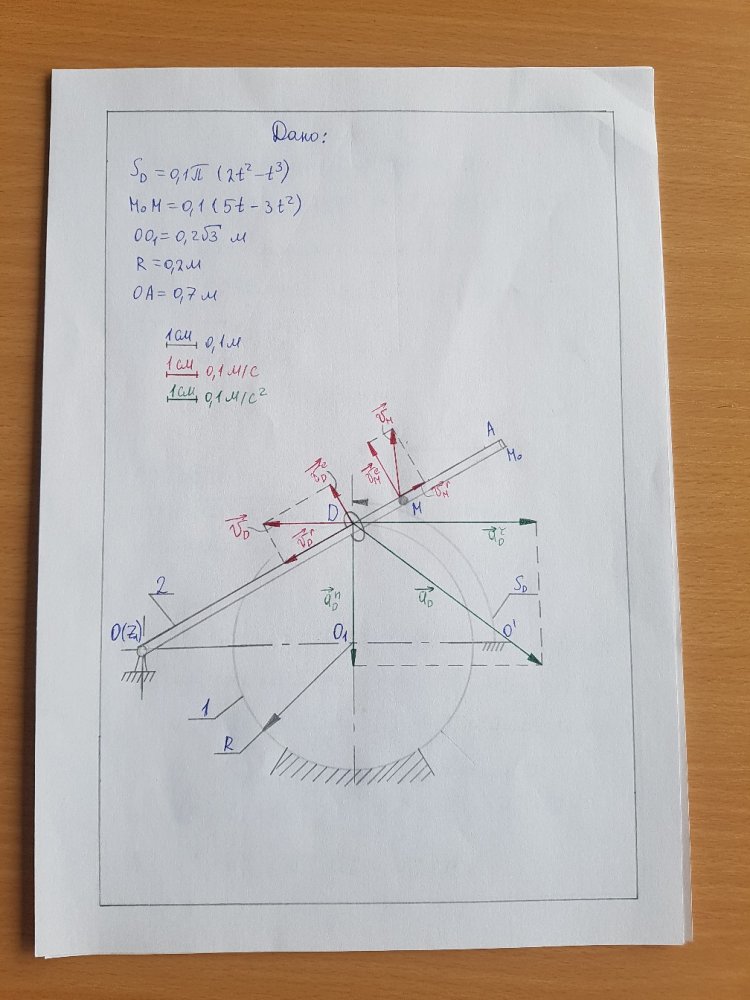 Дано:
S_D = 0,1π (2t² - t³)
M₀M = 0,1 (5t - 3t²)
OO₁ = 0,2√3 м
R = 0,2м
OA = 0,7 м
1см 0,1м
1см 0,1 м/с
1см 0,1 м/с²
A
M₀
v⃗_M
v⃗_M^e
v⃗_M^r
M
v⃗_D^e
D
v⃗_D
v⃗_D^r
a⃗_D^τ
2
a⃗_D^n
a⃗_D
S_D
O(Z₁)
O₁
O'
1
R